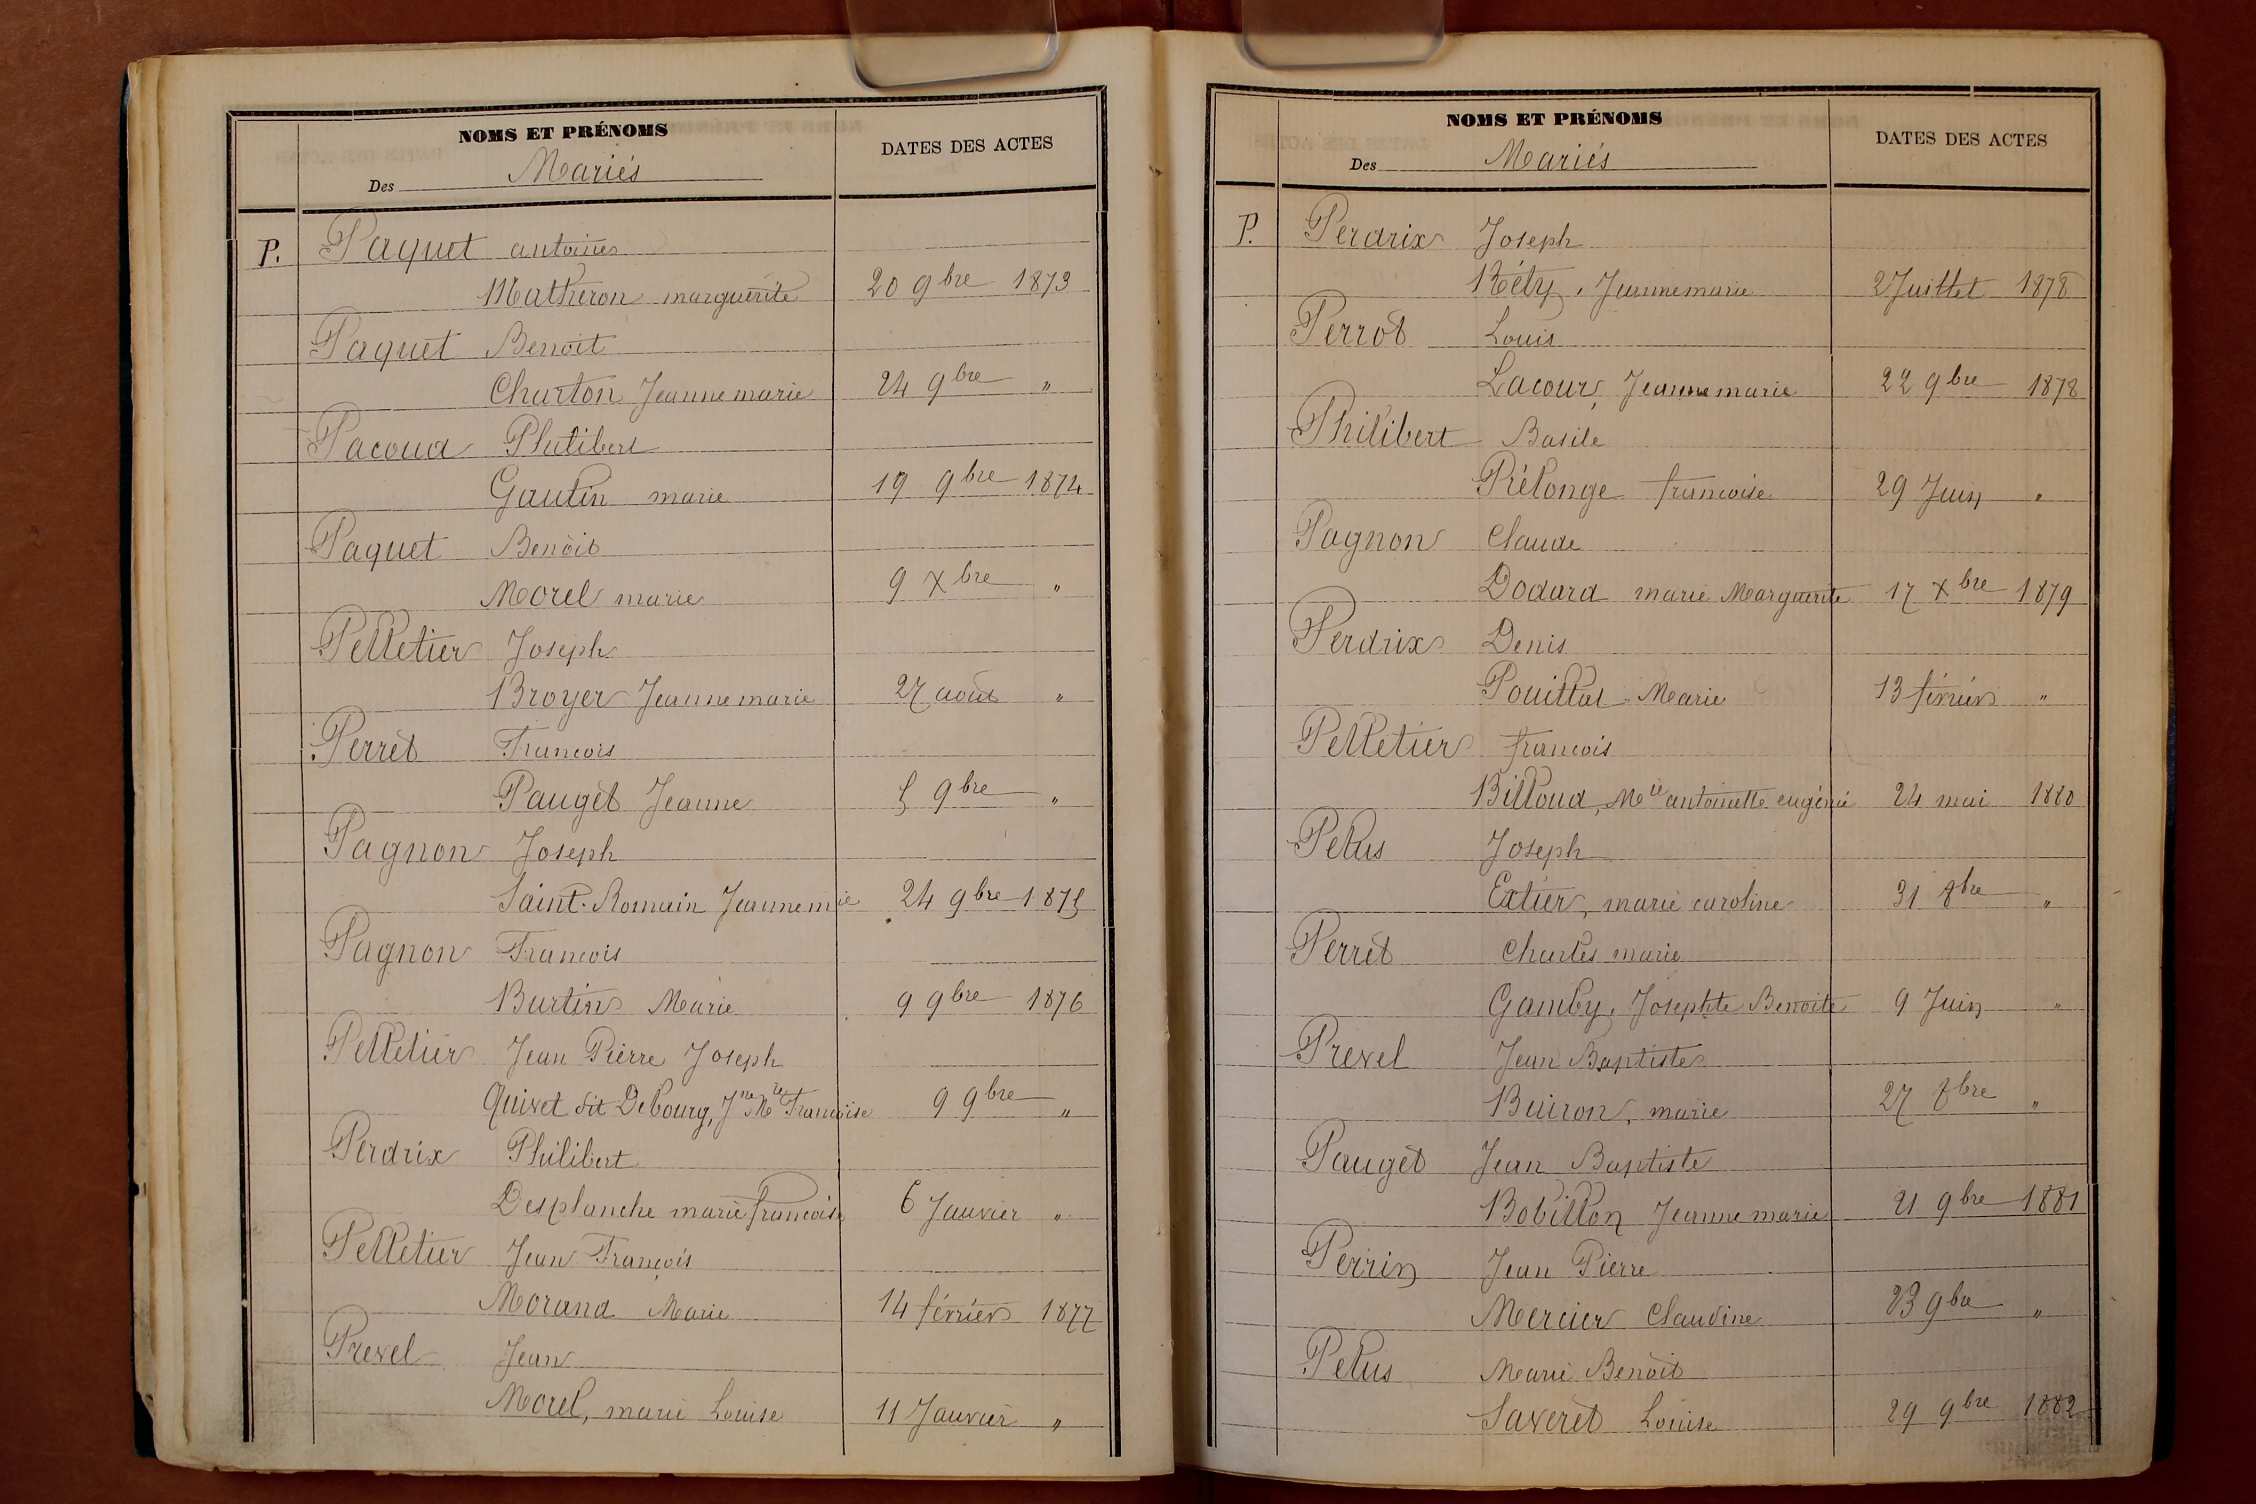 NOMS ET PRÉNOMS
DATES DES ACTES
Des Mariés
P. Paquet antoine
Matheron marguerite 20 9bre 1873
Paquet Benoit
Charton Jeanne marie 24 9bre "
Pacoud Philibert
Gautin marie 19 9bre 1874
Paquet Benoit
Morel marie 9 Xbre "
Pelletier Joseph
Broyer Jeanne marie 27 août "
Perret Francois
Pauget Jeanne 5 9bre "
Pagnon Joseph
Saint-Romain Jeanne mie 24 9bre 1875
Pagnon Francois
Burtin Marie 9 9bre 1876
Pelletier Jean Pierre Joseph
Quivet dit Debourg, Jne Mie Francoise 9 9bre "
Perdrix Philibert
Desplanche marie francoise 6 Janvier "
Pelletier Jean François
Morand Marie 14 février 1877
Prevel Jean
Morel, marie Louise 11 Janvier "
NOMS ET PRÉNOMS
DATES DES ACTES
Des Mariés
P. Perdrix Joseph
Réty, Jeanne marie 2 Juillet 1878
Perrot Louis
Lacour, Jeanne marie 22 9bre 1878
Philibert Basile
Prélonge francoise 29 Juin "
Pagnon Claude
Dodard marie Marguerite 17 Xbre 1879
Perdrix Denis
Pouillat Marie 13 février "
Pelletier francois
Billoud, Mie antoinette eugénie 24 mai 1880
Pelus Joseph
Extier, marie caroline 31 8bre "
Perret Charles marie
Gamby, Josephte Benoite 9 Juin "
Prevel Jean Baptiste
Buiron, marie 27 8bre "
Pauget Jean Baptiste
Bobillon Jeanne marie 21 9bre 1881
Perrin Jean Pierre
Mercier Claudine 23 9bre "
Pelus Marie Benoit
Saveret Louise 29 9bre 1882